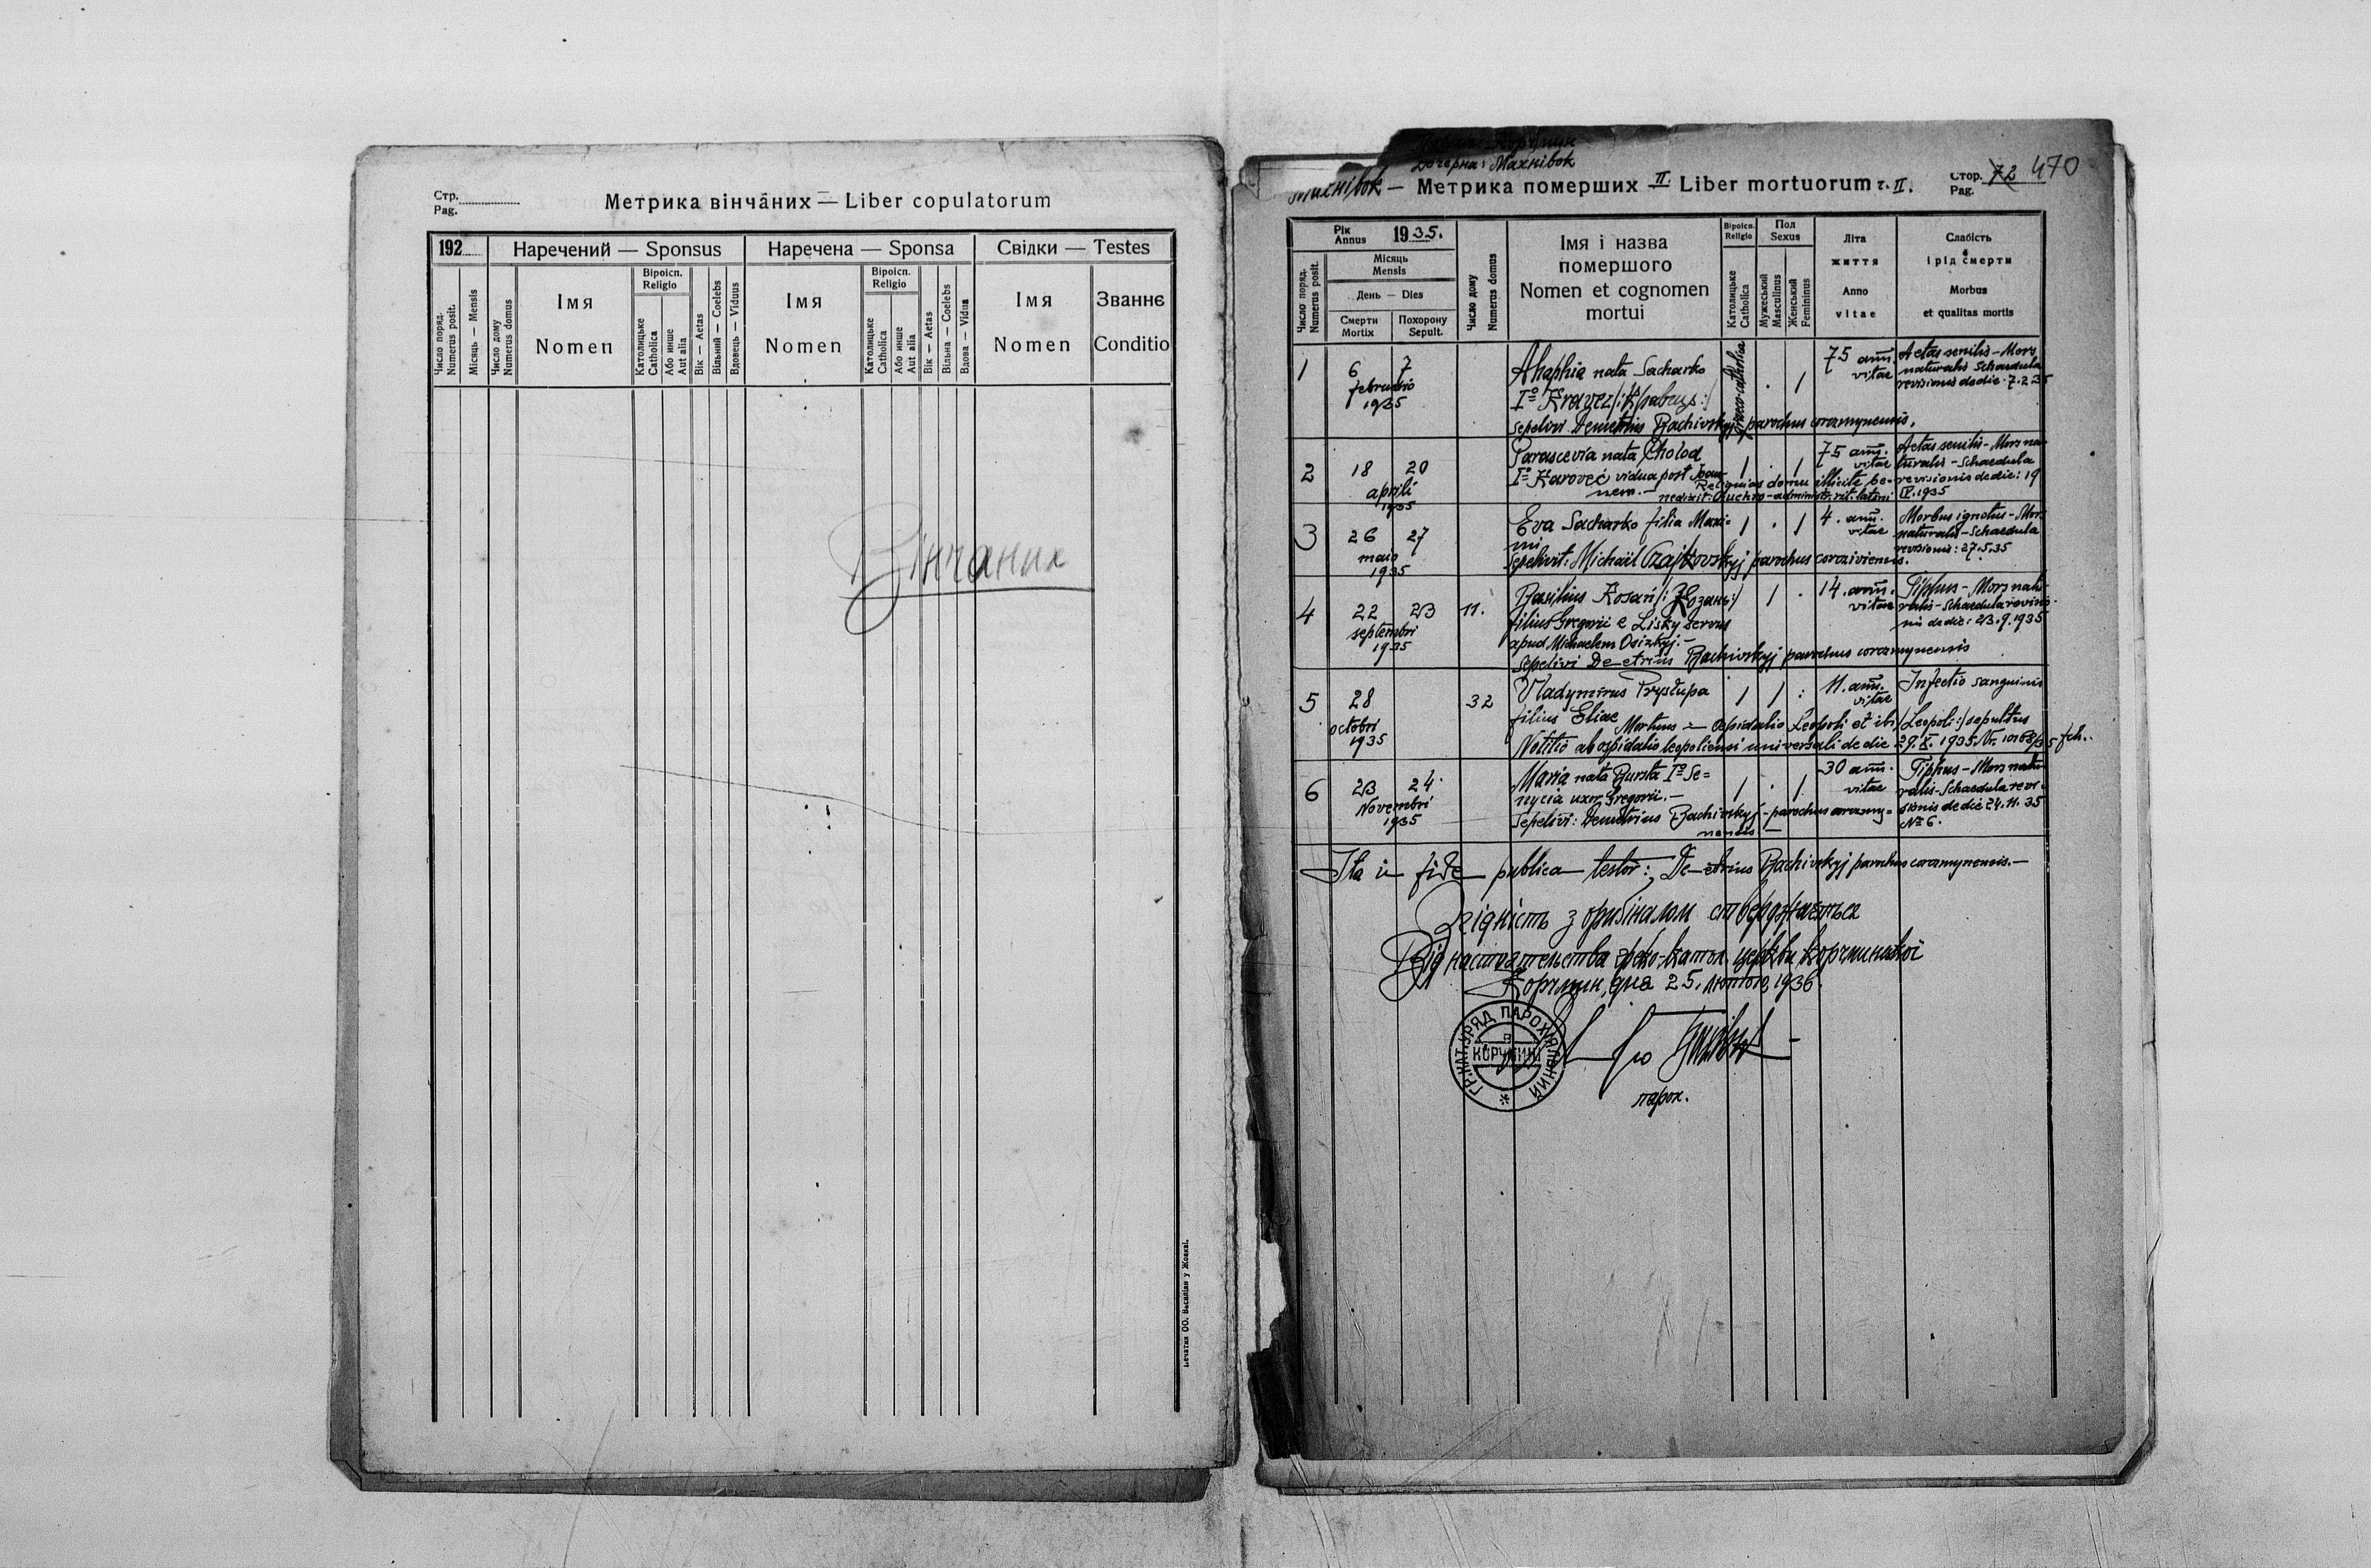 Стр.
Pag.
Метрика вінчāних — Liber copulatorum
192
Наречений — Sponsus
Наречена — Sponsa
Свідки — Testes
Число поряд.
Numerus posit.
Місяць — Mensis
Число дому
Numerus domus
Імя
Nomen
Віроісп.
Religio
Католицьке
Catholica
Або инше
Aut alia
Вік — Aetas
Вільний — Coelebs
Вдовець — Viduus
Імя
Nomen
Віроісп.
Religio
Католицьке
Catholica
Або инше
Aut alia
Вік — Aetas
Вільна — Coelebs
Вдова — Vidua
Імя
Nomen
Званнє
Conditio
Вінчаних
Печатня ОО. Василіян у Жовкві.
Дочерна: Махнівок
Махнівок — Метрика померших — II. Liber mortuorum т. II.
Стор.
Pag.
72 470
Рік
Annus
1935.
Місяць
Mensis
День — Dies
Число поряд.
Numerus posit.
Смерти
Mortix
Похорону
Sepult.
Число дому
Numerus domus
Імя і назва
помершого
Nomen et cognomen
mortui
Віроісп.
Religio
Католицьке
Catholica
Пол
Sexus
Мужеський
Masculinus
Женський
Femininus
Літа
життя
Anno
vitae
Слабість
і рід смерти
Morbus
et qualitas mortis
1
6 7
februario
1935
Ahaphia nata Sacharko
Iº Kravez /: Кравець :/
Sepelivi Demetrius Bachivskyj parochus corczmynensis.
graeco-catholica
. /
75 ann.
vitae
Aetas senilis - Mors
naturalis Schaedula
revisionis de die 7.2.35
2
18 20
aprili
1935
Parascevia nata Chołod
Iº Karoveć vidua post Joan-
nem. —
Reliquias domu illicite be-
nedixit: Puchro - administr. rit. latini
/ . /
75 ann.
vitae
Aetas senilis - Mors na-
turalis - Schaedula
revisionis de die: 19
IV. 1935
3
26 27
maio
1935
Eva Sacharko filia Maxi-
mi
Sepelivit: Michaël Czajkovskyj parochus
/ . /
4. ann.
vitae
Morbus ignotus - Mors
naturalis - Schaedula
revisionis: 27.5.35
4
22 23
septembri
1935
11.
Basilius Kosań /: Козань :/
filius Gregorii e Lisky servus
apud Michaelem Osizkyj. —
Sepelivi Demetrius Bachivskyj parochus corczmynensis
/ .
14. ann.
vitae
Tiphus - Mors natu-
ralis - Schaedula revisio-
nis de die: 23.9.1935
5
28
octobri
1935
32
Vladymirus Prystupa
filius Eliae
/ / :
11. ann.
vitae
Infectio sanguinis
Mortuus in ospidalio Leopoli et ibi /Leopoli:/ sepultus
Notitio ab ospidalio leopoliensi universali de die 29.X.1935. Nr. 10168/35
6
23 24.
Novembri
1935
Maria nata Bursta Iº Se=
nycia uxor Gregorii. —
Sepelivi: Demetrius Bachivskyj - parochus corczmy=
nensis —
/ . /
30 ann.
vitae
Tiphus - Mors natu-
ralis - Schaedula revi-
sionis de die 24.11.35
№ 6.
Ita in fide publica testor: Demetrius Bachivskyj parochus corczmynensis. —
Згідність з оригіналом стверджається
Від настоятельства греко-катол. церкви Корчминської
Корчмин, дня 25. лютого, 1936.
ГР. КАТ. УРЯД ПАРОХІЯЛЬНИЙ
В
КОРЧМИНІ
парох.